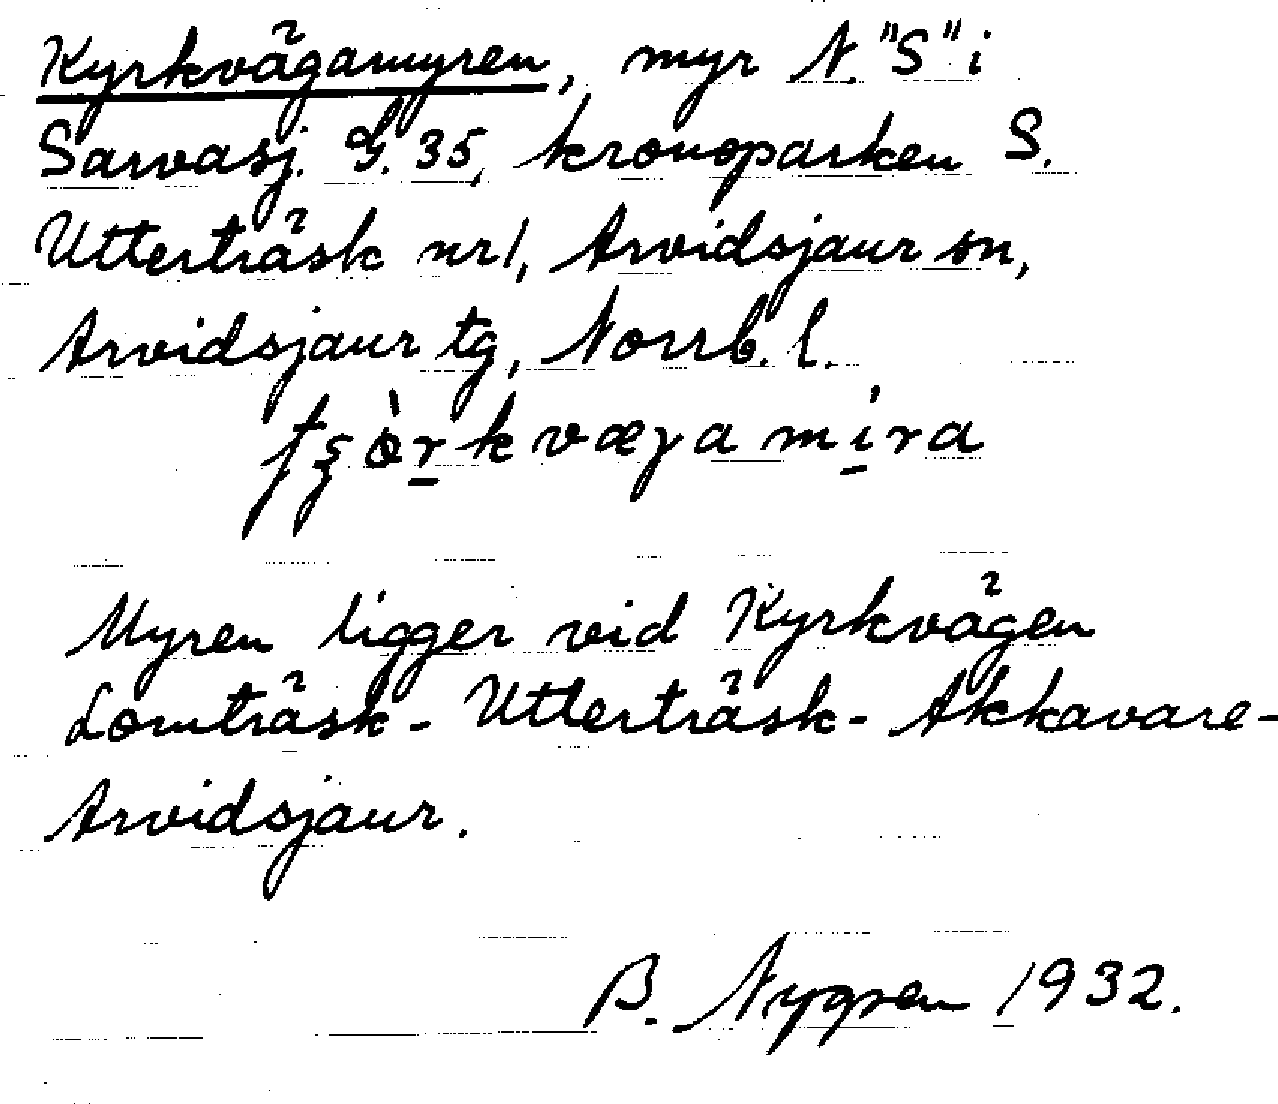 Kyrkvägamyren, myr N. "S" i
Sarvasj. G. 35, kronoparken S.
Utterträsk nr 1, Arvidsjaur sn,
Arvidsjaur tg, Norrb. l.
tʂò̱rkvæɣamíra
Myren ligger vid Kyrkvägen
Lomträsk - Utterträsk - Akkavare-
Arvidsjaur.
B. Nygren 1932.